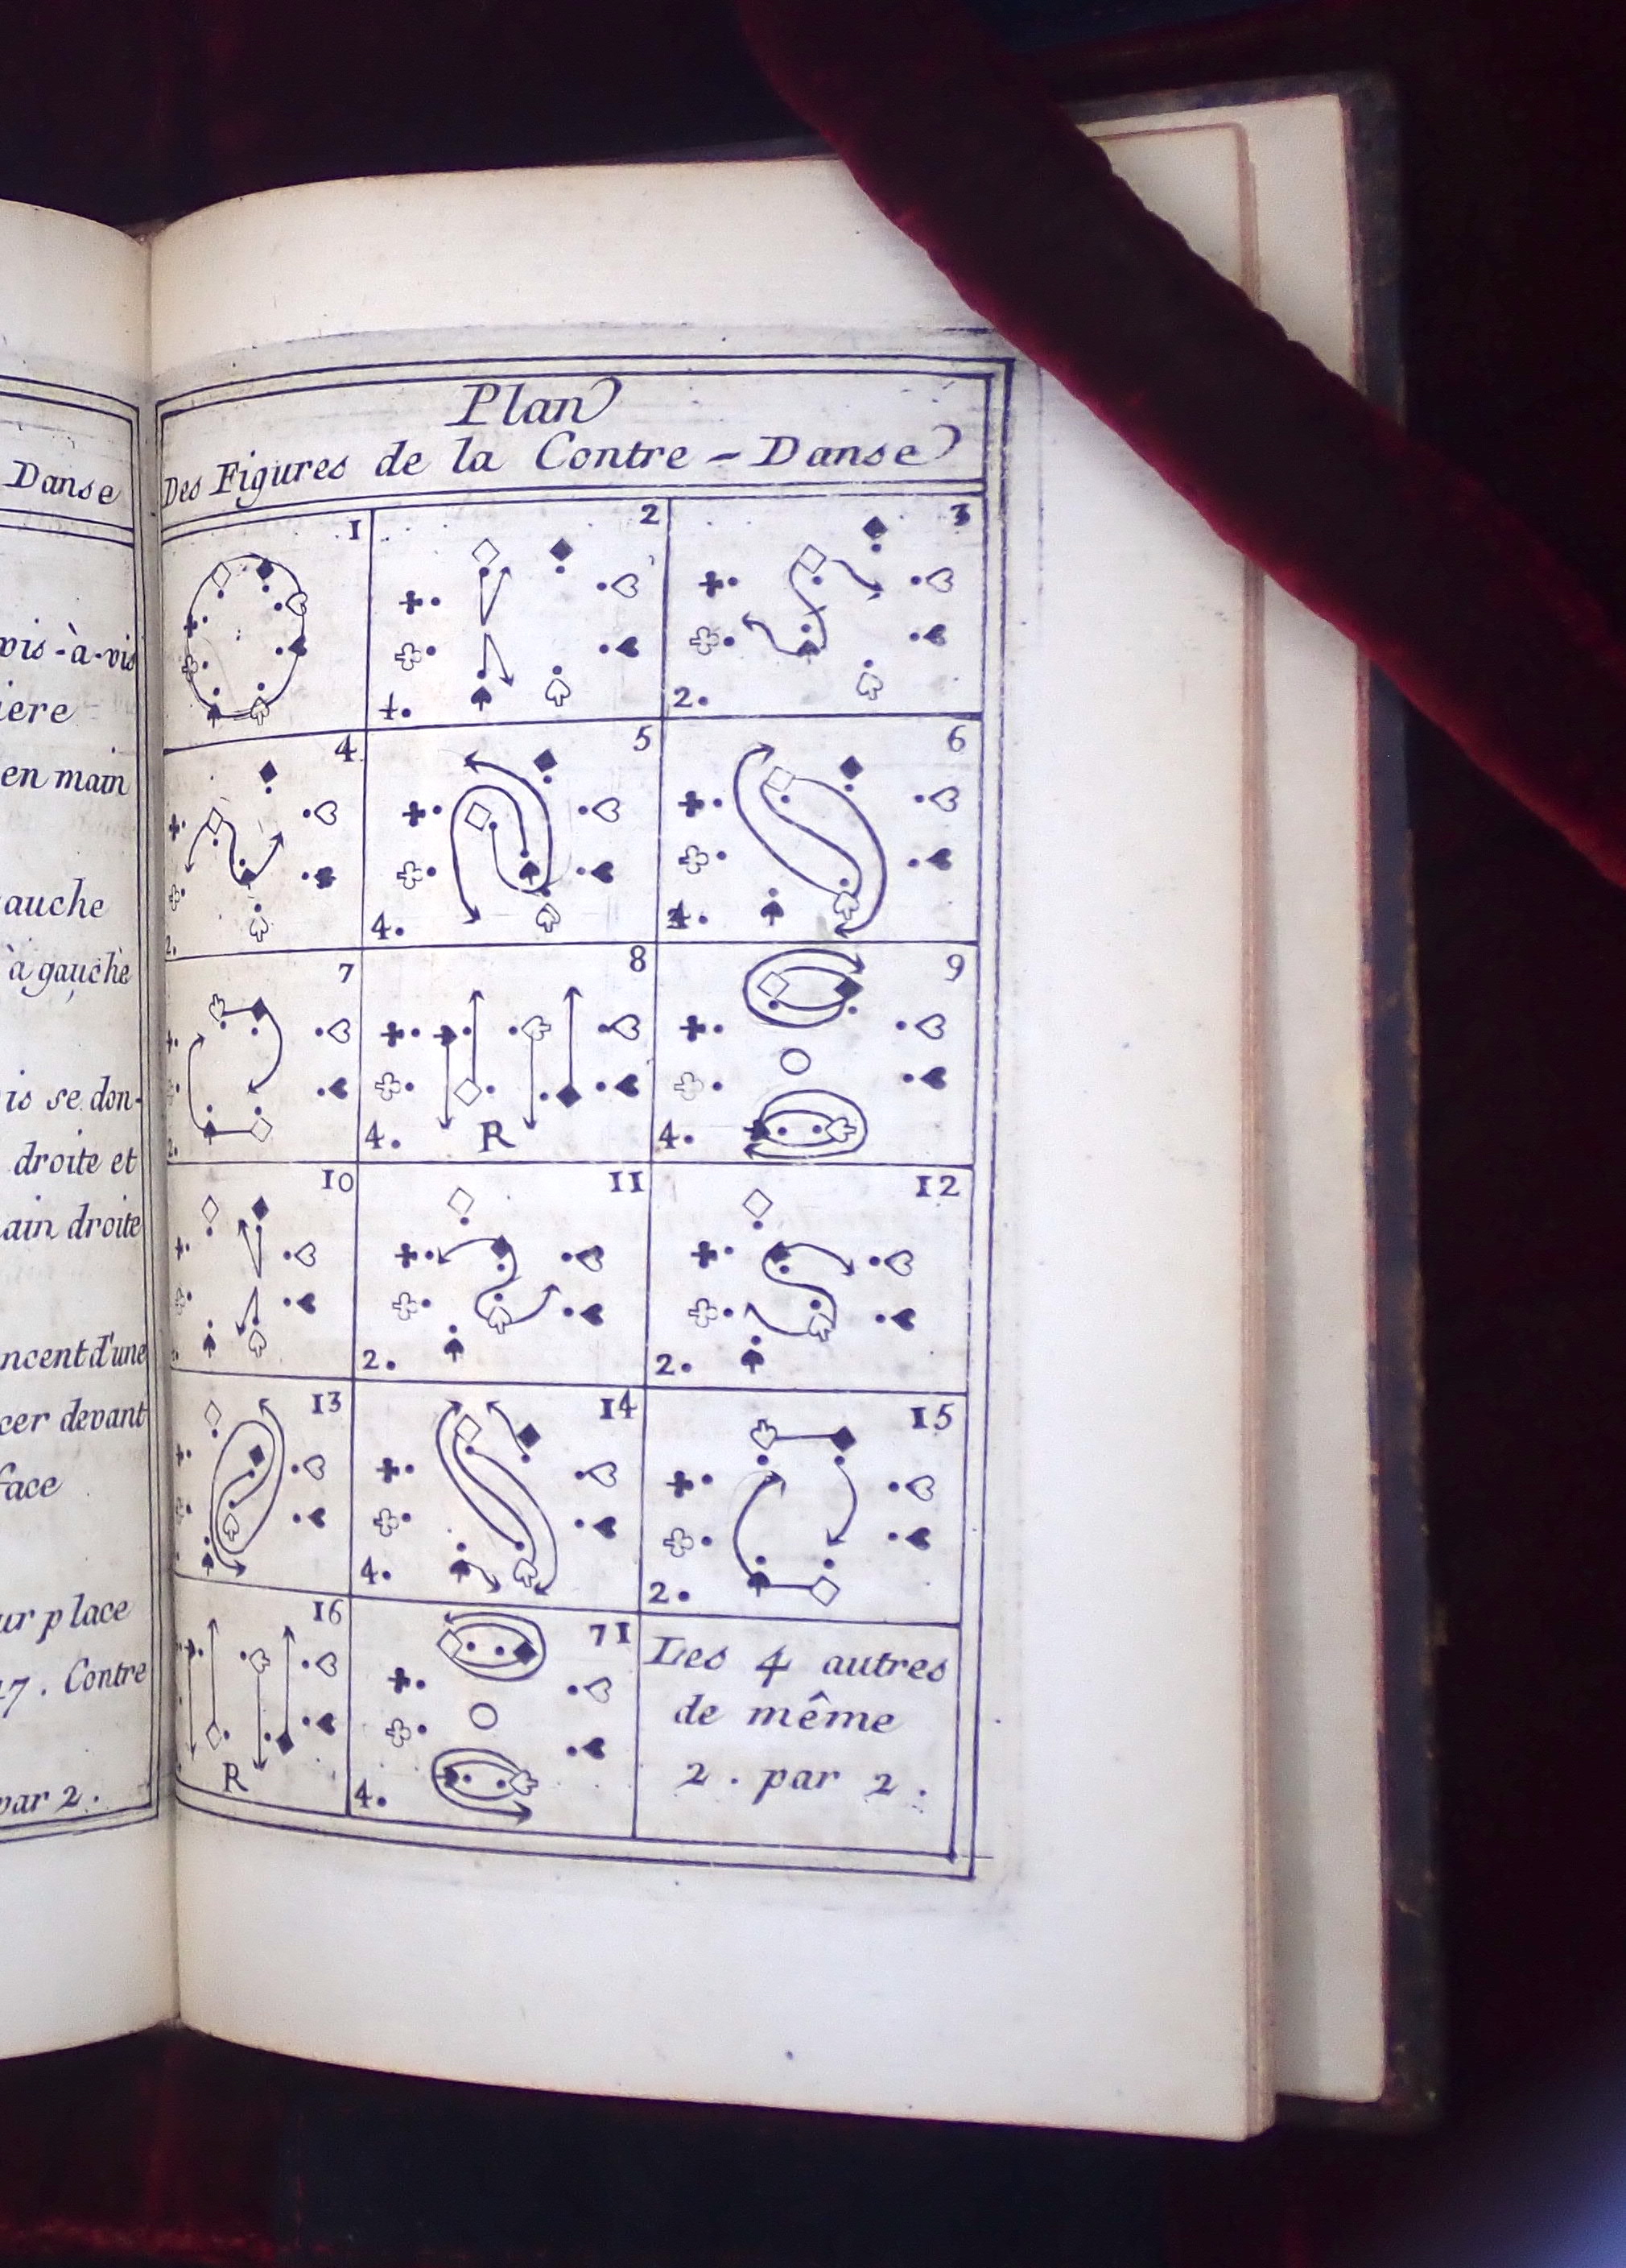 Danse
vis-à-vis
iere
en main
auche
à gauche
is se don-
droite et
ain droite
ncent d'une
cer devant
face
ur place
17. Contre
par 2.
Plan
Des Figures de la Contre-Danse
1
2
1.
3
2.
4
2.
5
4.
6
4.
7
2.
8
4. R
9
4.
10
11
2.
12
2.
13
14
4.
15
2.
16
R
71
4.
Les 4 autres
de même
2. par 2.